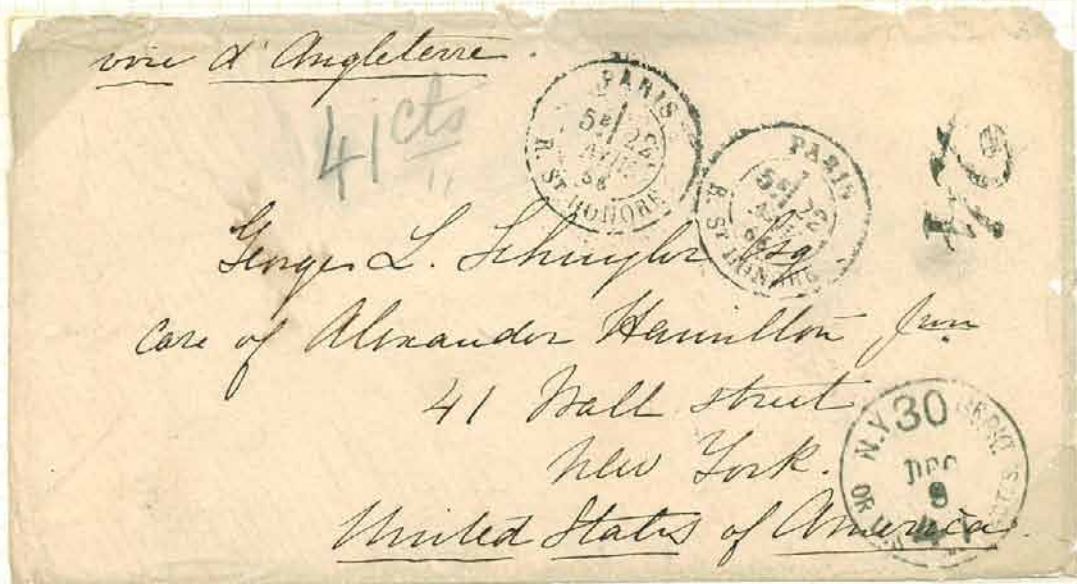 voie d'Angleterre.
41 cts
PARIS
R. ST HONORE
PARIS
R. ST HONORE
George L. Schuyler Esq.
Care of Alexander Hamilton Jun
41 Wall street
New York.
United States of America.
N.Y 30
DEC
OR
41